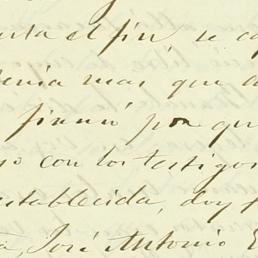 el fin se
mas que
firmó por que
con los testigos
establecida, doy f
José Antonio